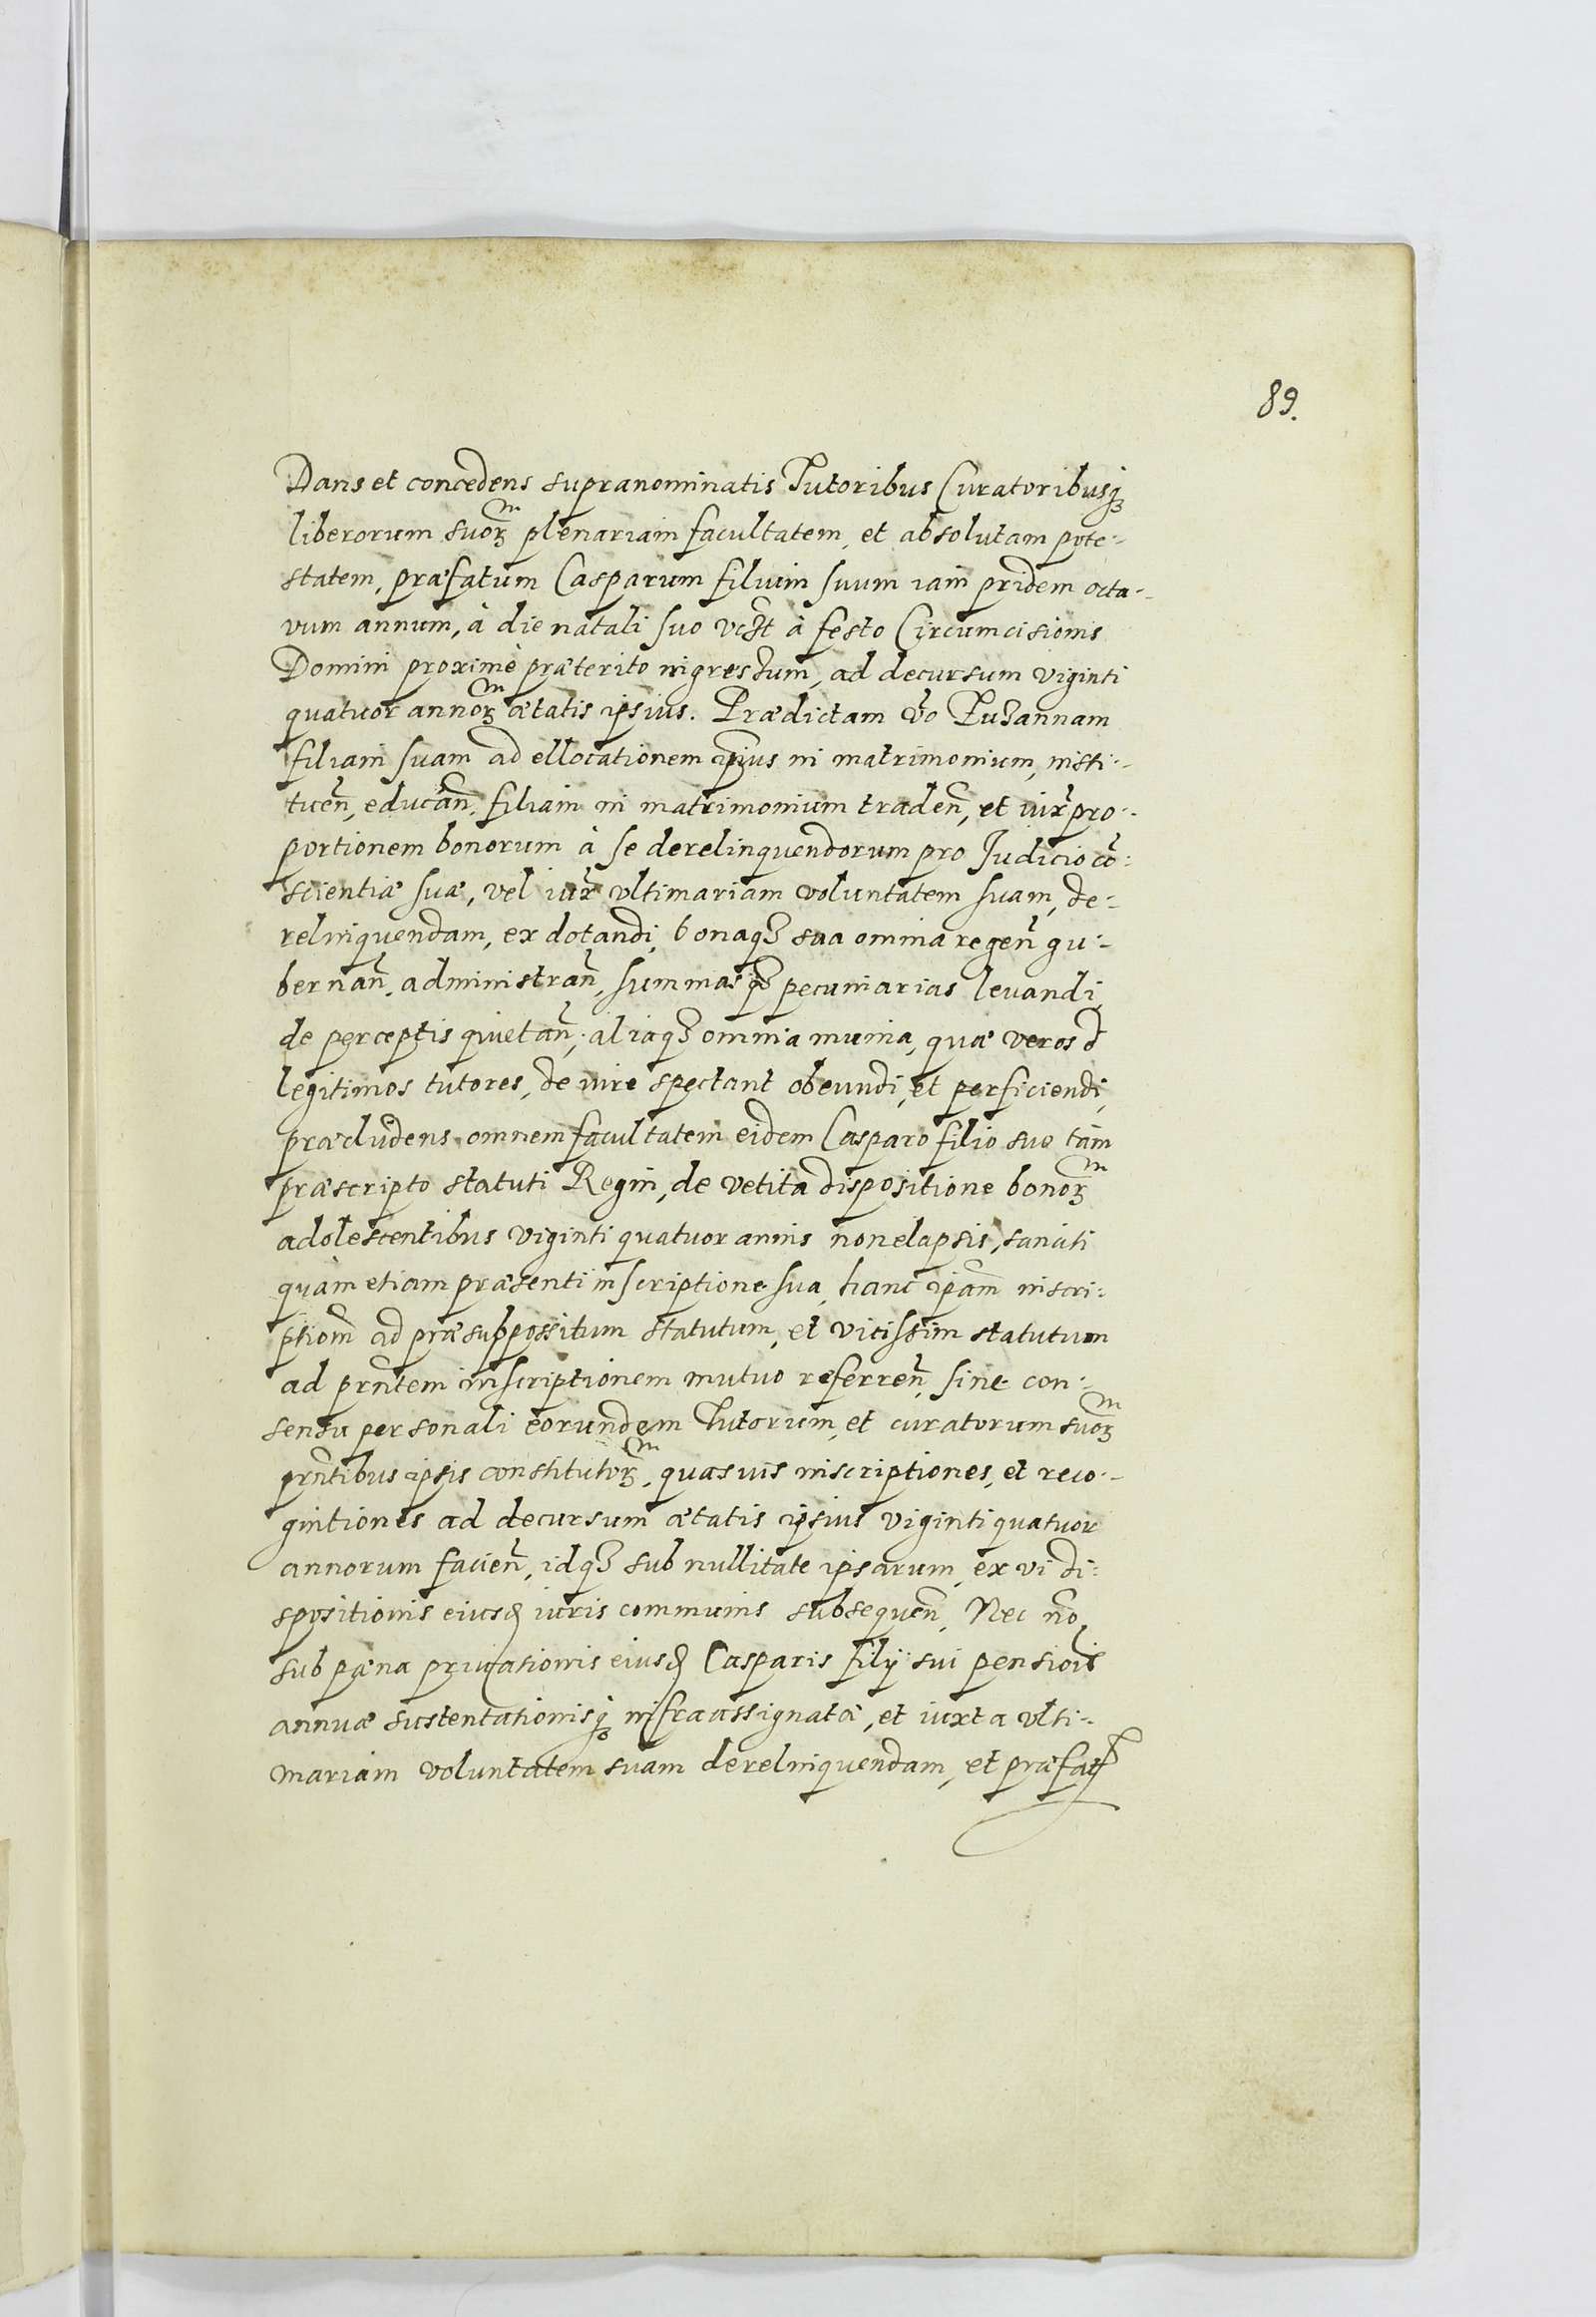 89.
Dans et concedens supranominatis Tutoribus Curatoribusq₃
liberorum suoꝝ^m plenariam facultatem, et absolutam pote-
statem, præfatum Casparum filium suum iam pridem octa-
vum annum, à die natali suo à festo Circumcisionis
Domini proximè præterito ingressum, ad decursum viginti
quatuor annoꝝ^m ætatis ipsius. Prædictam v̄o Zuzannam
filiam suam ad ellocationem ip̄ius in matrimonium, insti-
tuen̄, educan̄, filiam in matrimonium traden̄, et iux̄ pro-
portionem bonorum à se derelinquendorum pro Judicio cō-
scientiæ suæ, vel iux̄ vltimariam voluntatem suam, de-
relinquendam, ex dotandi, bonaq₃ sua omnia regen̄ gu-
bernan̄, administran̄, summasq₃ pecuniarias leuandi,
de perceptis quietan̄, aliaq₃ omnia munia, quæ veros et
legitimos tutores, de iure spectant obeundi, et perficiendi,
præcludens omnem facultatem eidem Casparo filio suo tàm
præscripto statuti Regni, de vetita dispositione bonoꝝ^m
adolescentibus viginti quatuor annis non elapsis, sanciti
quàm etiam præsenti inscriptione sua, hanc ip̄am inscri-
ptiom̄ ad præsuppositum statutum, et vicissim statutum
ad prn̄tem inscriptionem mutuo referren̄, sine con-
sensu personali eorundem Tutorum, et curatorum suoꝝ^m
prn̄tibus ipsis constitutoꝝ^m, quasuis inscriptiones, et reco-
gnitiones ad decursum ætatis ipsius viginti quatuor
annorum facien̄, idq₃ sub nullitate ipsarum, ex vi di-
spositionis eiusd̄ iuris communis subsequen̄, Nec nō,
sub pæna priuationis eiusd̄ Casparis filij sui pensiōis
annuæ sustentationisq₃ infra assignatæ, et iuxta vlti-
mariam voluntatem suam derelinquendam, et præfat̄